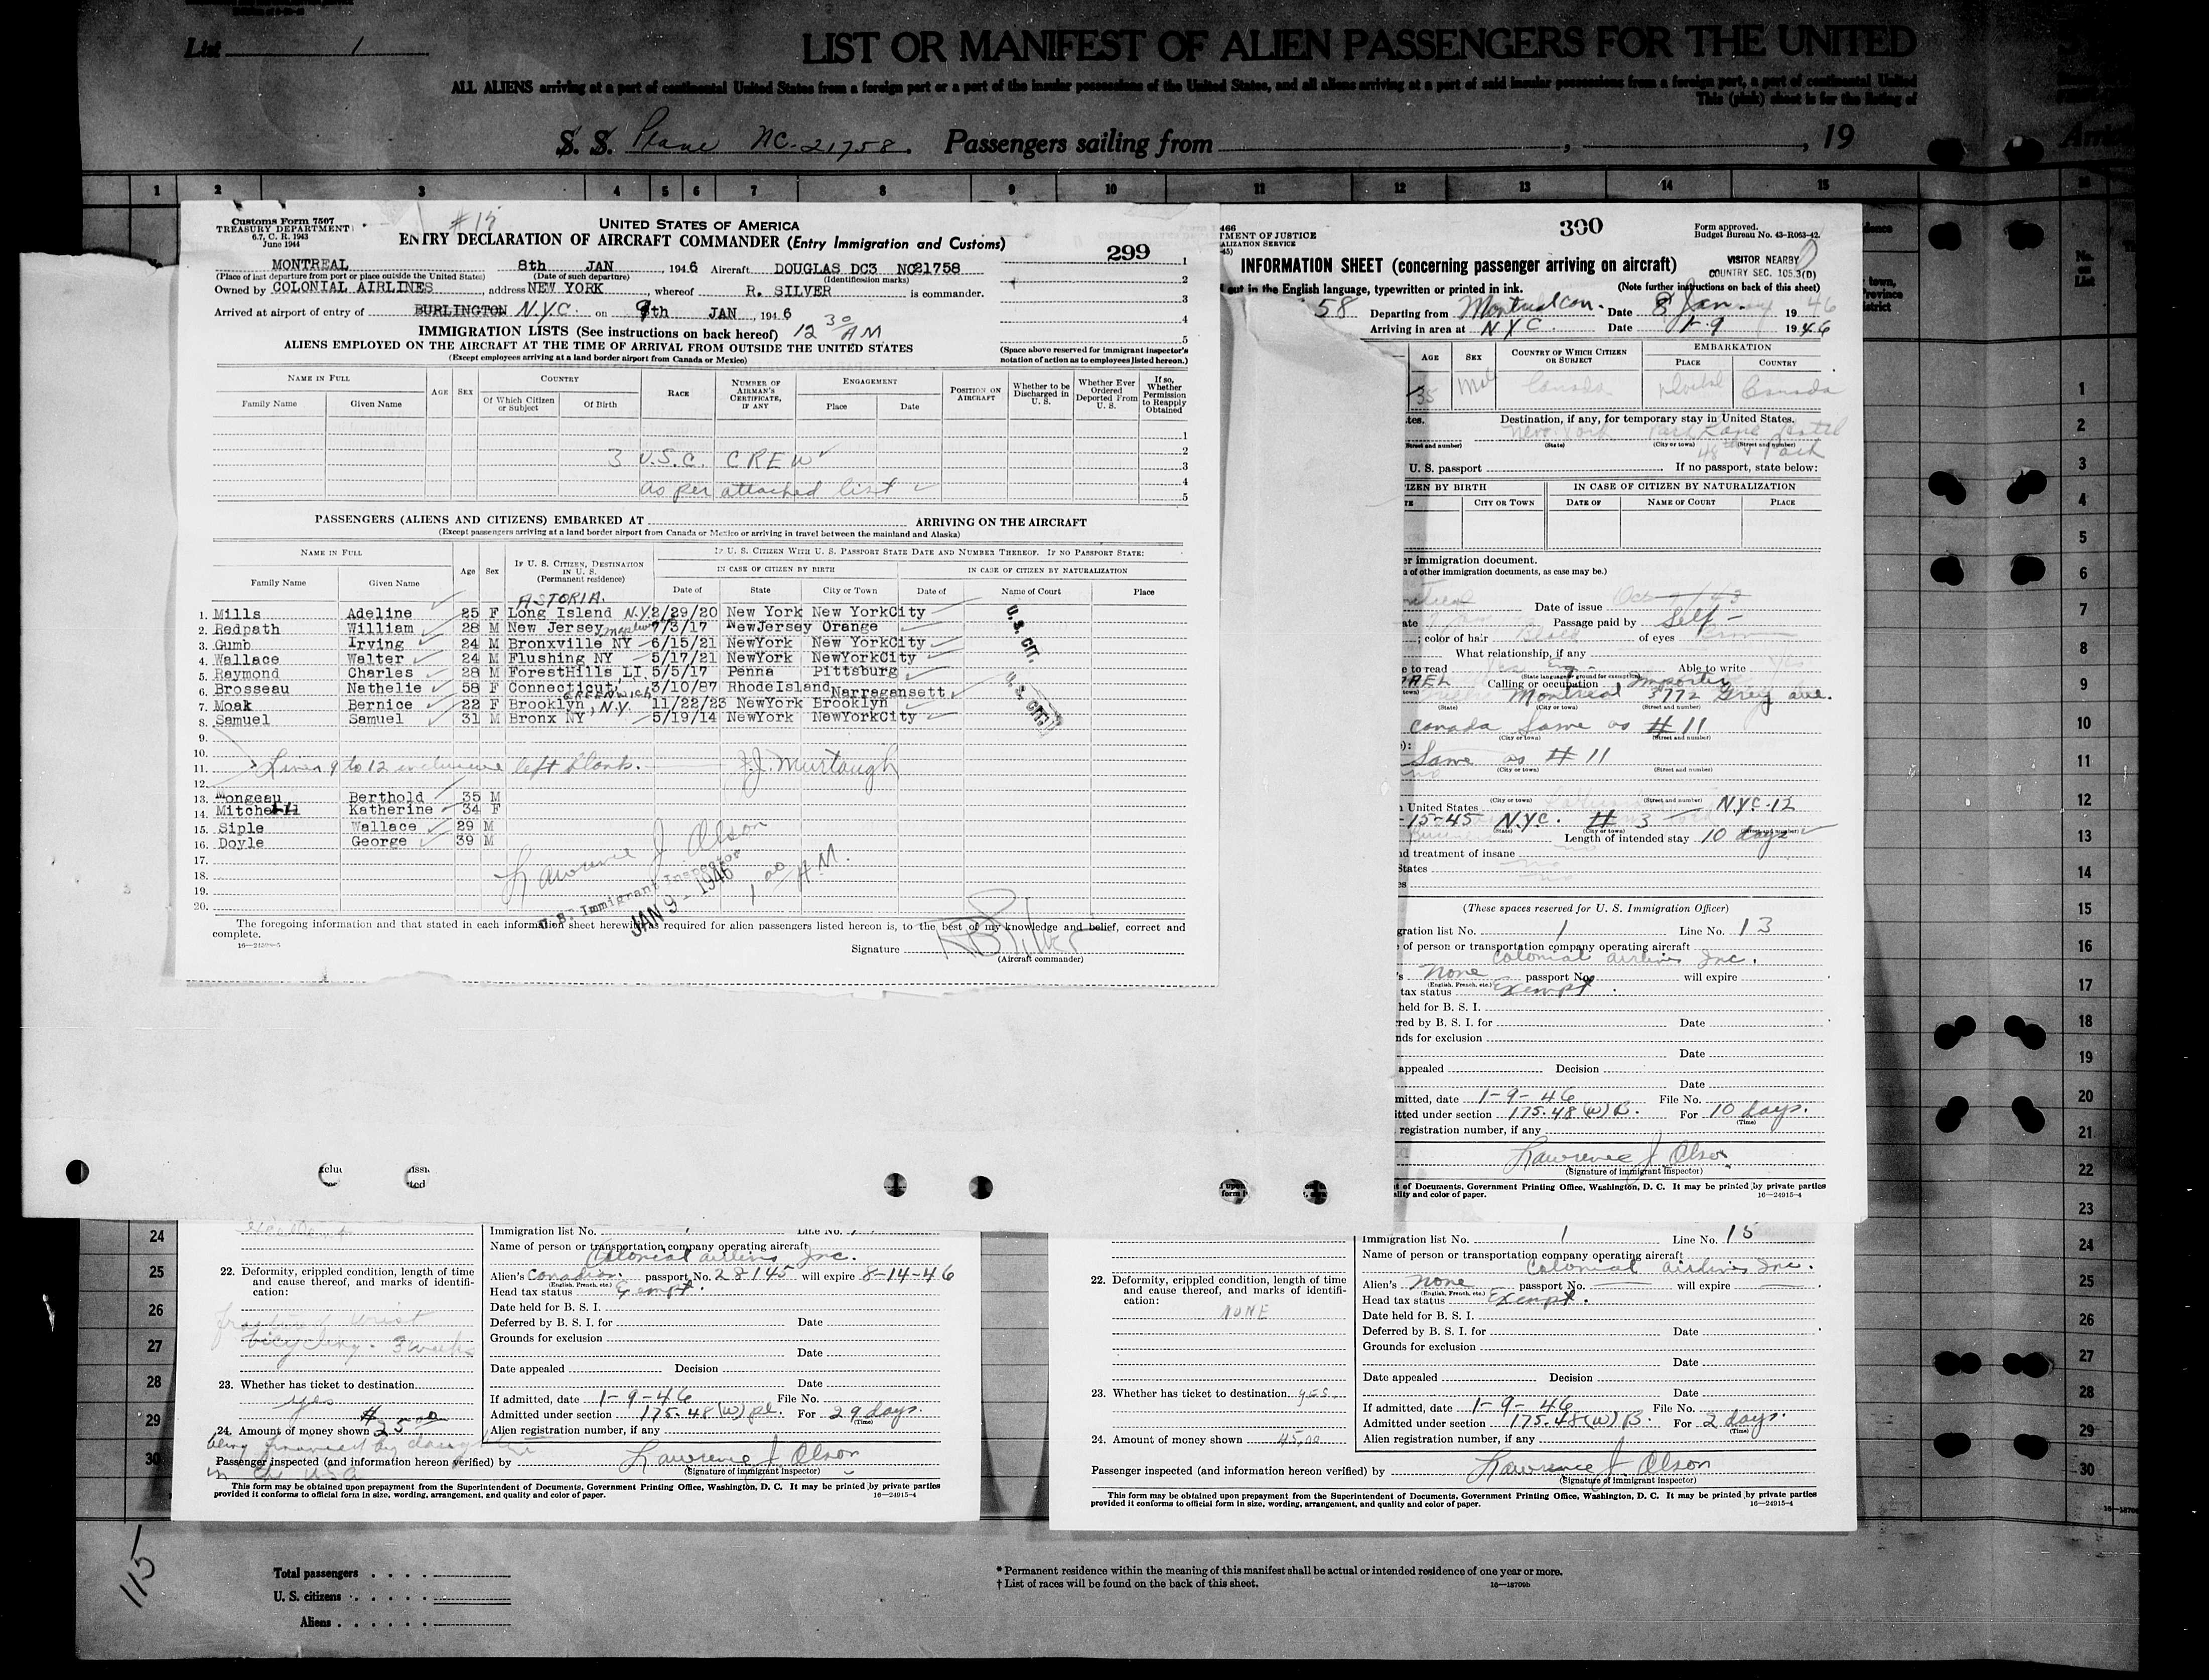 List 1
LIST OR MANIFEST OF ALIEN PASSENGERS FOR THE UNITED
ALL ALIENS arriving at a port of continental United States from a foreign port or a port of the insular possessions of the United States, and all aliens arriving at a port of said insular possessions from a foreign port, a port of continental United
This (pink) sheet is for the listing of
S. S. Plane NC-21758. Passengers sailing from , , 19
1 2 3 4 5 6 7 8 9 10 11 12 13 14 15
Customs Form 7507
TREASURY DEPARTMENT
6.7, C. R. 1943
June 1944
#15
UNITED STATES OF AMERICA
ENTRY DECLARATION OF AIRCRAFT COMMANDER (Entry Immigration and Customs)
299
MONTREAL 8th JAN , 1946 Aircraft DOUGLAS DC3 NC21758
(Place of last departure from port or place outside the United States) (Date of such departure) (Identification marks)
Owned by COLONIAL AIRLINES , address NEW YORK , whereof R. SILVER is commander.
Arrived at airport of entry of BURLINGTON N.Y.C. on 9th JAN , 1946
12 30 AM
IMMIGRATION LISTS (See instructions on back hereof)
ALIENS EMPLOYED ON THE AIRCRAFT AT THE TIME OF ARRIVAL FROM OUTSIDE THE UNITED STATES
(Except employees arriving at a land border airport from Canada or Mexico)
1
2
3
4
5
(Space above reserved for immigrant inspector's
notation of action as to employees listed hereon.)
NAME IN FULL AGE SEX COUNTRY RACE NUMBER OF AIRMAN'S CERTIFICATE, IF ANY ENGAGEMENT POSITION ON AIRCRAFT Whether to be Discharged in U. S. Whether Ever Ordered Deported From U. S. If so, Whether Permission to Reapply Obtained
Family Name Given Name Of Which Citizen or Subject Of Birth Place Date
1
2
3 U.S.C. CREW
3
4
as per attached list
5
PASSENGERS (ALIENS AND CITIZENS) EMBARKED AT ARRIVING ON THE AIRCRAFT
(Except passengers arriving at a land border airport from Canada or Mexico or arriving in travel between the mainland and Alaska)
NAME IN FULL Age Sex IF U. S. CITIZEN, DESTINATION IN U. S. (Permanent residence) IF U. S. CITIZEN WITH U. S. PASSPORT STATE DATE AND NUMBER THEREOF. IF NO PASSPORT STATE:
IN CASE OF CITIZEN BY BIRTH IN CASE OF CITIZEN BY NATURALIZATION
Family Name Given Name Date of State City or Town Date of Name of Court Place
ASTORIA.
1. Mills Adeline 25 F Long Island N.Y. 2/29/20 New York New YorkCity
2. Redpath William 28 M New Jersey 7/3/17 NewJersey Orange
3. Gumb Irving 24 M Bronxville NY 6/15/21 NewYork New YorkCity
4. Wallace Walter 24 M Flushing NY 5/17/21 NewYork NewYorkCity
5. Raymond Charles 28 M ForestHills, LI 5/5/17 Penna Pittsburg
6. Brosseau Nathelie 58 F Connecticut, GREENWICH 3/10/87 RhodeIsland Narragansett
7. Moak Bernice 22 F Brooklyn, N.Y. 11/22/23 NewYork Brooklyn
8. Samuel Samuel 31 M Bronx NY 5/19/14 NewYork NewYorkCity
U.S. CIT.
U.S. CIT.
9.
10.
11. Lines 9 to 12 inclusive left blank. J.J. Murtaugh
12.
13. Mongeau Berthold 35 M
14. Mitchell Katherine 34 F
15. Siple Wallace 29 M
16. Doyle George 39 M
17.
18.
19.
20.
Lawrence J Olson
U.S. Immigrant Inspector
JAN 9 - 1946
1 00 A.M.
The foregoing information and that stated in each information sheet herewith as required for alien passengers listed hereon is, to the best of my knowledge and belief, correct and
complete.
Signature RB Silver
(Aircraft commander)
466
TMENT OF JUSTICE
ALIZATION SERVICE
45)
300
Form approved.
Budget Bureau No. 43-R063-42.
INFORMATION SHEET (concerning passenger arriving on aircraft)
VISITOR NEARBY
COUNTRY SEC. 105.3(D)
out in the English language, typewritten or printed in ink. (Note further instructions on back of this sheet)
58 Departing from Montreal Can. Date 8 Jan. 19 46
Arriving in area at N.Y.C. Date 1-9 1946
AGE SEX COUNTRY OF WHICH CITIZEN OR SUBJECT EMBARKATION
PLACE COUNTRY
35 Male Canada Dorval Canada
tes. Destination, if any, for temporary stay in United States.
New York Park Lane Hotel
Street and number) (State) (City or town) (Street and number)
48th & Park
U. S. passport If no passport, state below:
IZEN BY BIRTH IN CASE OF CITIZEN BY NATURALIZATION
CITY OR TOWN DATE OF NAME OF COURT PLACE
er immigration document.
of other immigration documents, as case may be.)
Date of issue Oct
Passage paid by Self -
; color of hair Black of eyes Brown
What relationship, if any
e to read Yes Eng - Able to write Yes
(State language or ground for exemption)
Calling or occupation Importer
Montreal 3772 Grey ave.
(State) (City or town) (Street and number)
Canada Same as # 11
(City or town) (Street and number)
Same as # 11
(City or town) (Street and number)
no
United States N.Y.C.-12
(City or town) (Street and number)
-15-45 N.Y.C. # 3
Length of intended stay 10 days
d treatment of insane no
States no
es no
(These spaces reserved for U. S. Immigration Officer)
gration list No. 1 Line No. 13
of person or transportation company operating aircraft
Colonial airlines Inc.
's None passport No. will expire
(English, French, etc.)
tax status Exempt.
held for B. S. I.
red by B. S. I. for Date
nds for exclusion
Date
appealed Decision
Date
mitted, date 1-9-46 File No.
itted under section 175.48(w)B. For 10 days.
(Time)
registration number, if any
Lawrence J Olson
(Signature of immigrant inspector)
t of Documents, Government Printing Office, Washington, D. C. It may be printed by private parties
ality and color of paper. 16—24915-4
Immigration list No. Line No.
Name of person or transportation company operating aircraft
Colonial airlines Inc.
22. Deformity, crippled condition, length of time
and cause thereof, and marks of identifi-
cation:
fractured wrist
bicycling - 3 weeks
Alien's Canadian passport No. 28145 will expire 8-14-46
(English, French, etc.)
Head tax status Exempt.
Date held for B. S. I.
Deferred by B. S. I. for Date
Grounds for exclusion
Date
Date appealed Decision
Date
23. Whether has ticket to destination
yes
If admitted, date 1-9-46 File No.
Admitted under section 175.48(w)pl. For 29 days.
(Time)
24. Amount of money shown $25.00
being financed by daughter
in the USA
Alien registration number, if any
Passenger inspected (and information hereon verified) by Lawrence J Olson
(Signature of immigrant inspector)
This form may be obtained upon prepayment from the Superintendent of Documents, Government Printing Office, Washington, D. C. It may be printed by private parties
provided it conforms to official form in size, wording, arrangement, and quality and color of paper. 16—24915-4
Immigration list No. 1 Line No. 15
Name of person or transportation company operating aircraft
Colonial airlines Inc.
22. Deformity, crippled condition, length of time
and cause thereof, and marks of identifi-
cation:
NONE
Alien's None passport No. will expire
(English, French, etc.)
Head tax status Exempt.
Date held for B. S. I.
Deferred by B. S. I. for Date
Grounds for exclusion
Date
Date appealed Decision
Date
23. Whether has ticket to destination yes.
If admitted, date 1-9-46 File No.
Admitted under section 175.48(w)B. For 2 days.
(Time)
24. Amount of money shown 45.00
Alien registration number, if any
Passenger inspected (and information hereon verified) by Lawrence J Olson
(Signature of immigrant inspector)
This form may be obtained upon prepayment from the Superintendent of Documents, Government Printing Office, Washington, D. C. It may be printed by private parties
provided it conforms to official form in size, wording, arrangement, and quality and color of paper. 16—24915-4
24
25
26
27
28
29
30
No. on List
1
2
3
4
5
6
7
8
9
10
11
12
13
14
15
16
17
18
19
20
21
22
23
24
25
26
27
28
29
30
115
Total passengers
U. S. citizens
Aliens
* Permanent residence within the meaning of this manifest shall be actual or intended residence of one year or more.
† List of races will be found on the back of this sheet.